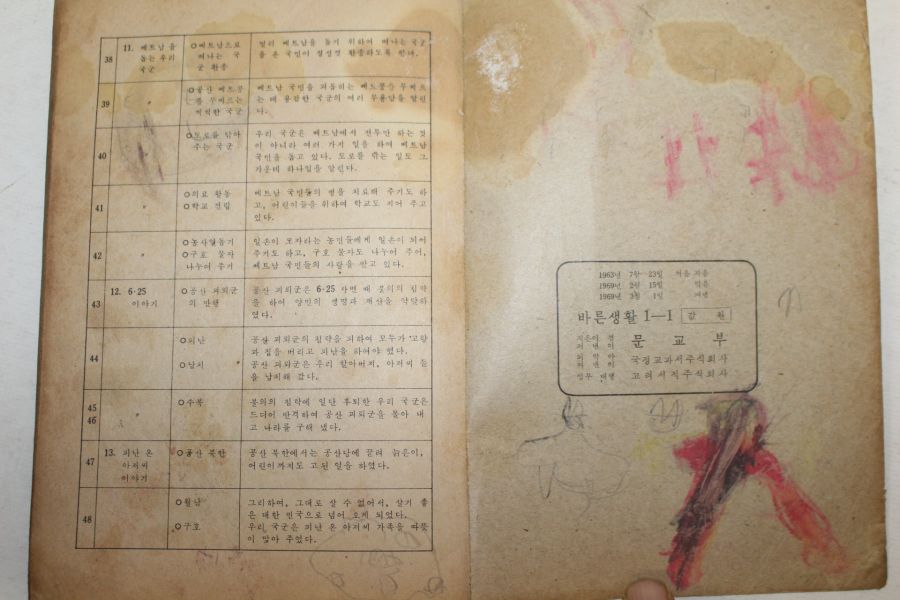 38 11. 베트남을 돕는 우리 국군
○베트남으로 떠나는 국군 환송
멀리 베트남을 돕기 위하여 떠나는 국군
을 온 국민이 정성껏 환송하도록 한다.
39 〃
○공산 베트콩을 무찌르는 씩씩한 국군
베트남 국민을 괴롭히는 베트콩을 무찌르
는 데 용감한 국군의 여러 무용담을 알린
다.
40 〃
○도로를 닦아 주는 국군
우리 국군은 베트남에서 전투만 하는 것
이 아니라 여러 가지 일을 하여 베트남
국민을 돕고 있다. 도로를 닦는 일도 그
가운데 하나임을 알린다.
41 〃
○의료 활동
○학교 건립
베트남 국민들의 병을 치료해 주기도 하
고, 어린이들을 위하여 학교도 지어 주고
있다.
42 〃
○농사일 돕기
○구호 물자 나누어 주기
일손이 모자라는 농민들에게 일손이 되어
주기도 하고, 구호 물자도 나누어 주어,
베트남 국민들의 사랑을 받고 있다.
43 12. 6·25 이야기
○공산 괴뢰군의 만행
공산 괴뢰군은 6·25 사변 때 불의의 침략
을 하여 양민의 생명과 재산을 약탈하
였다.
44 〃
○피난
○납치
공산 괴뢰군의 침략을 피하여 모두가 고향
과 집을 버리고 피난을 하여야 했다.
공산 괴뢰군은 우리 할아버지, 아저씨 들
을 납치해 갔다.
45
46 〃
○수복
불의의 침략에 일단 후퇴한 우리 국군은
드디어 반격하여 공산 괴뢰군을 몰아 내
고 나라를 구해 냈다.
47 13. 피난 온 아저씨 이야기
○공산 북한
공산 북한에서는 공산당에 끌려 늙은이,
어린이까지도 고된 일을 하였다.
48
○월남
○구호
그리하여, 그대로 살 수 없어서, 살기 좋
은 대한 민국으로 넘어 오게 되었다.
우리 국군은 피난 온 아저씨 가족을 따뜻
이 맞아 주었다.
1963년 7월 23일 처음 지음
1969년 2월 15일 박음
1969년 3월 1일 펴냄
바른생활 1—1 값 원
지은이 겸 펴낸이 문교부
박은이 펴낸이 국정교과서주식회사
업무 대행 고려서적주식회사